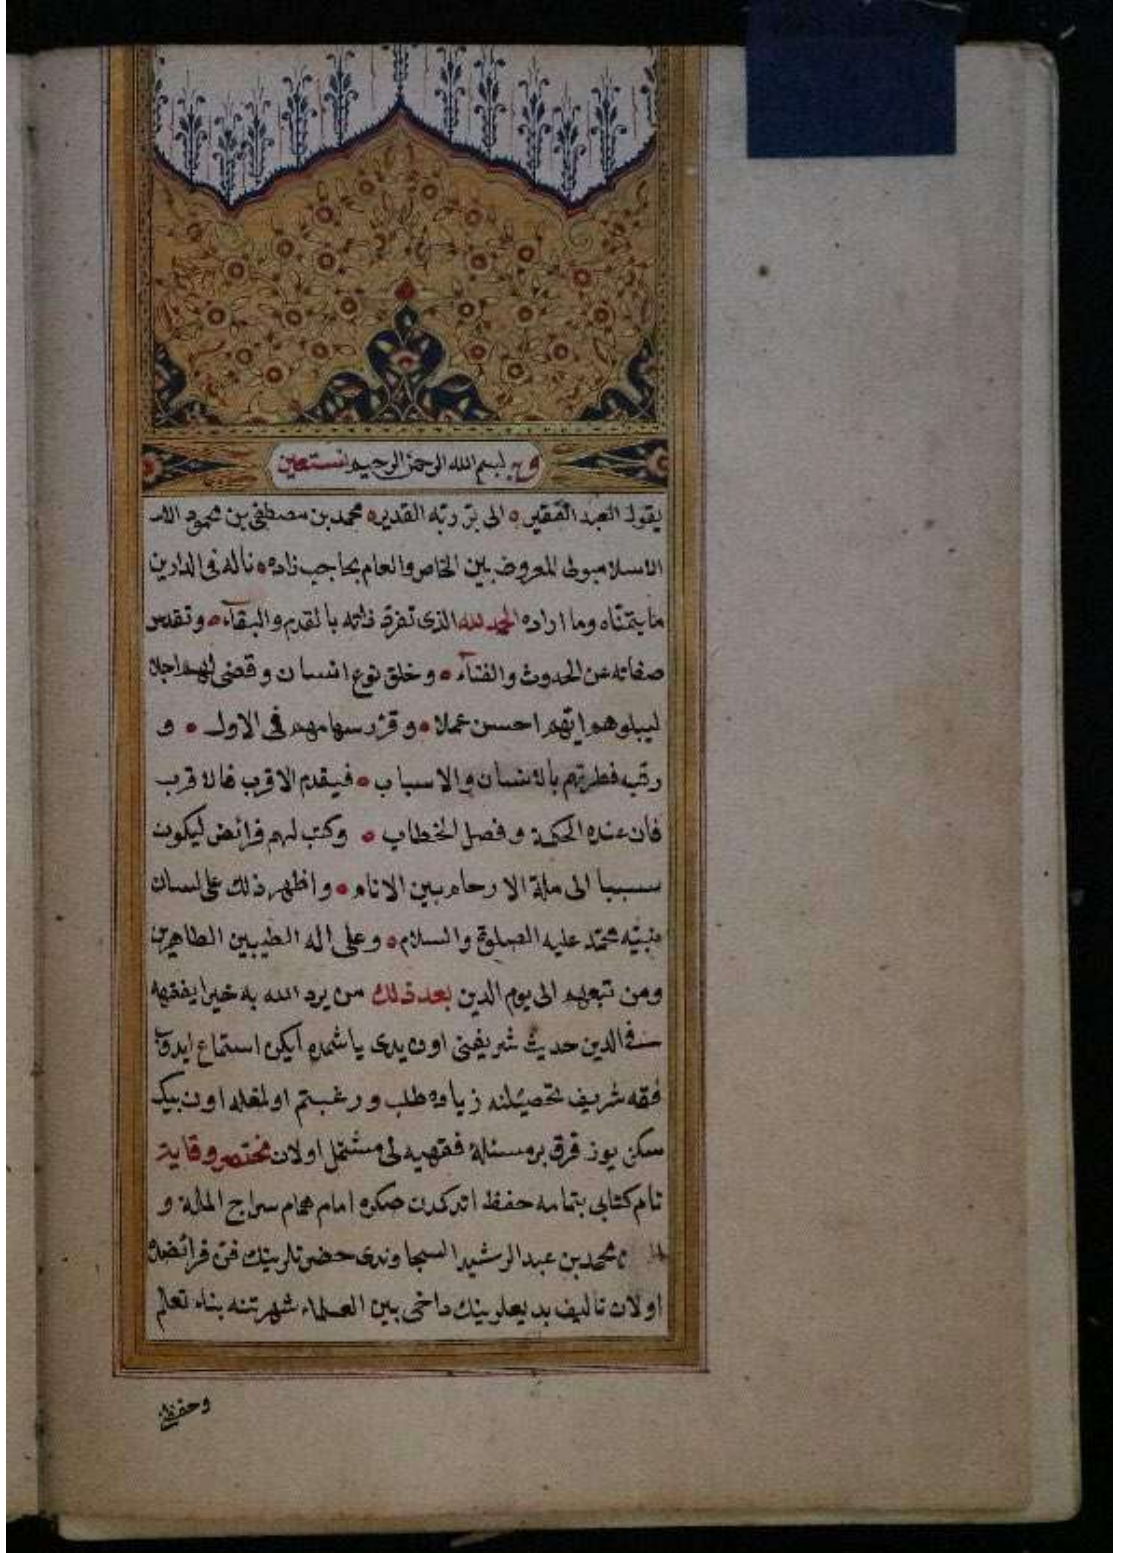 وبه بسم الله الرحمن الرحيم نستعين
يقول العبد الفقير الى بر ربه القدير محمد بن مصطفى بن محمود الاس
الاسلامبولى المعروف بين الخاص والعام بحاجب زاده ناله فى الدارين
ما يتمناه وما اراده الحمد لله الذى تفرد ذاته بالقدم والبقاء وتقدس
صفاته عن الحدوث والفناء وخلق نوع انسان وقضى لهم اجلا
ليبلوهم ايهم احسن عملا وقرر سهامهم فى الاول و
رتب فطرتهم بالانساب والاسباب فيقدم الاقرب فالاقرب
فان عنده الحكمة وفصل الخطاب وكتب لهم فرائض ليكون
سببا الى صلة الارحام بين الانام واظهر ذلك على لسان
نبيه محمد عليه الصلوة والسلام وعلى اله الطيبين الطاهرين
ومن تبعهم الى يوم الدين بعد ذلك من يرد الله به خيرا يفقهه
فى الدين حديث شريفنى اون يدى ياشمده ايكن استماع ايدوب
فقه شريف تحصيلنه زياده طلب و رغبتم اولمغله اون بيك
سكن يوز قرق بر مسئلهٔ فقهيه لى مشتمل اولان مختصر وقاية
نام كتابى بتمامه حفظ اتدكدن صكره امام همام سراج الملة و
محمد بن عبد الرشيد السجاوندى حضرتلرينك فن فرائضده
اولان تاليف بديعلرينك داخى بين العلماء شهرتنه بناء تعلم
وحفظ